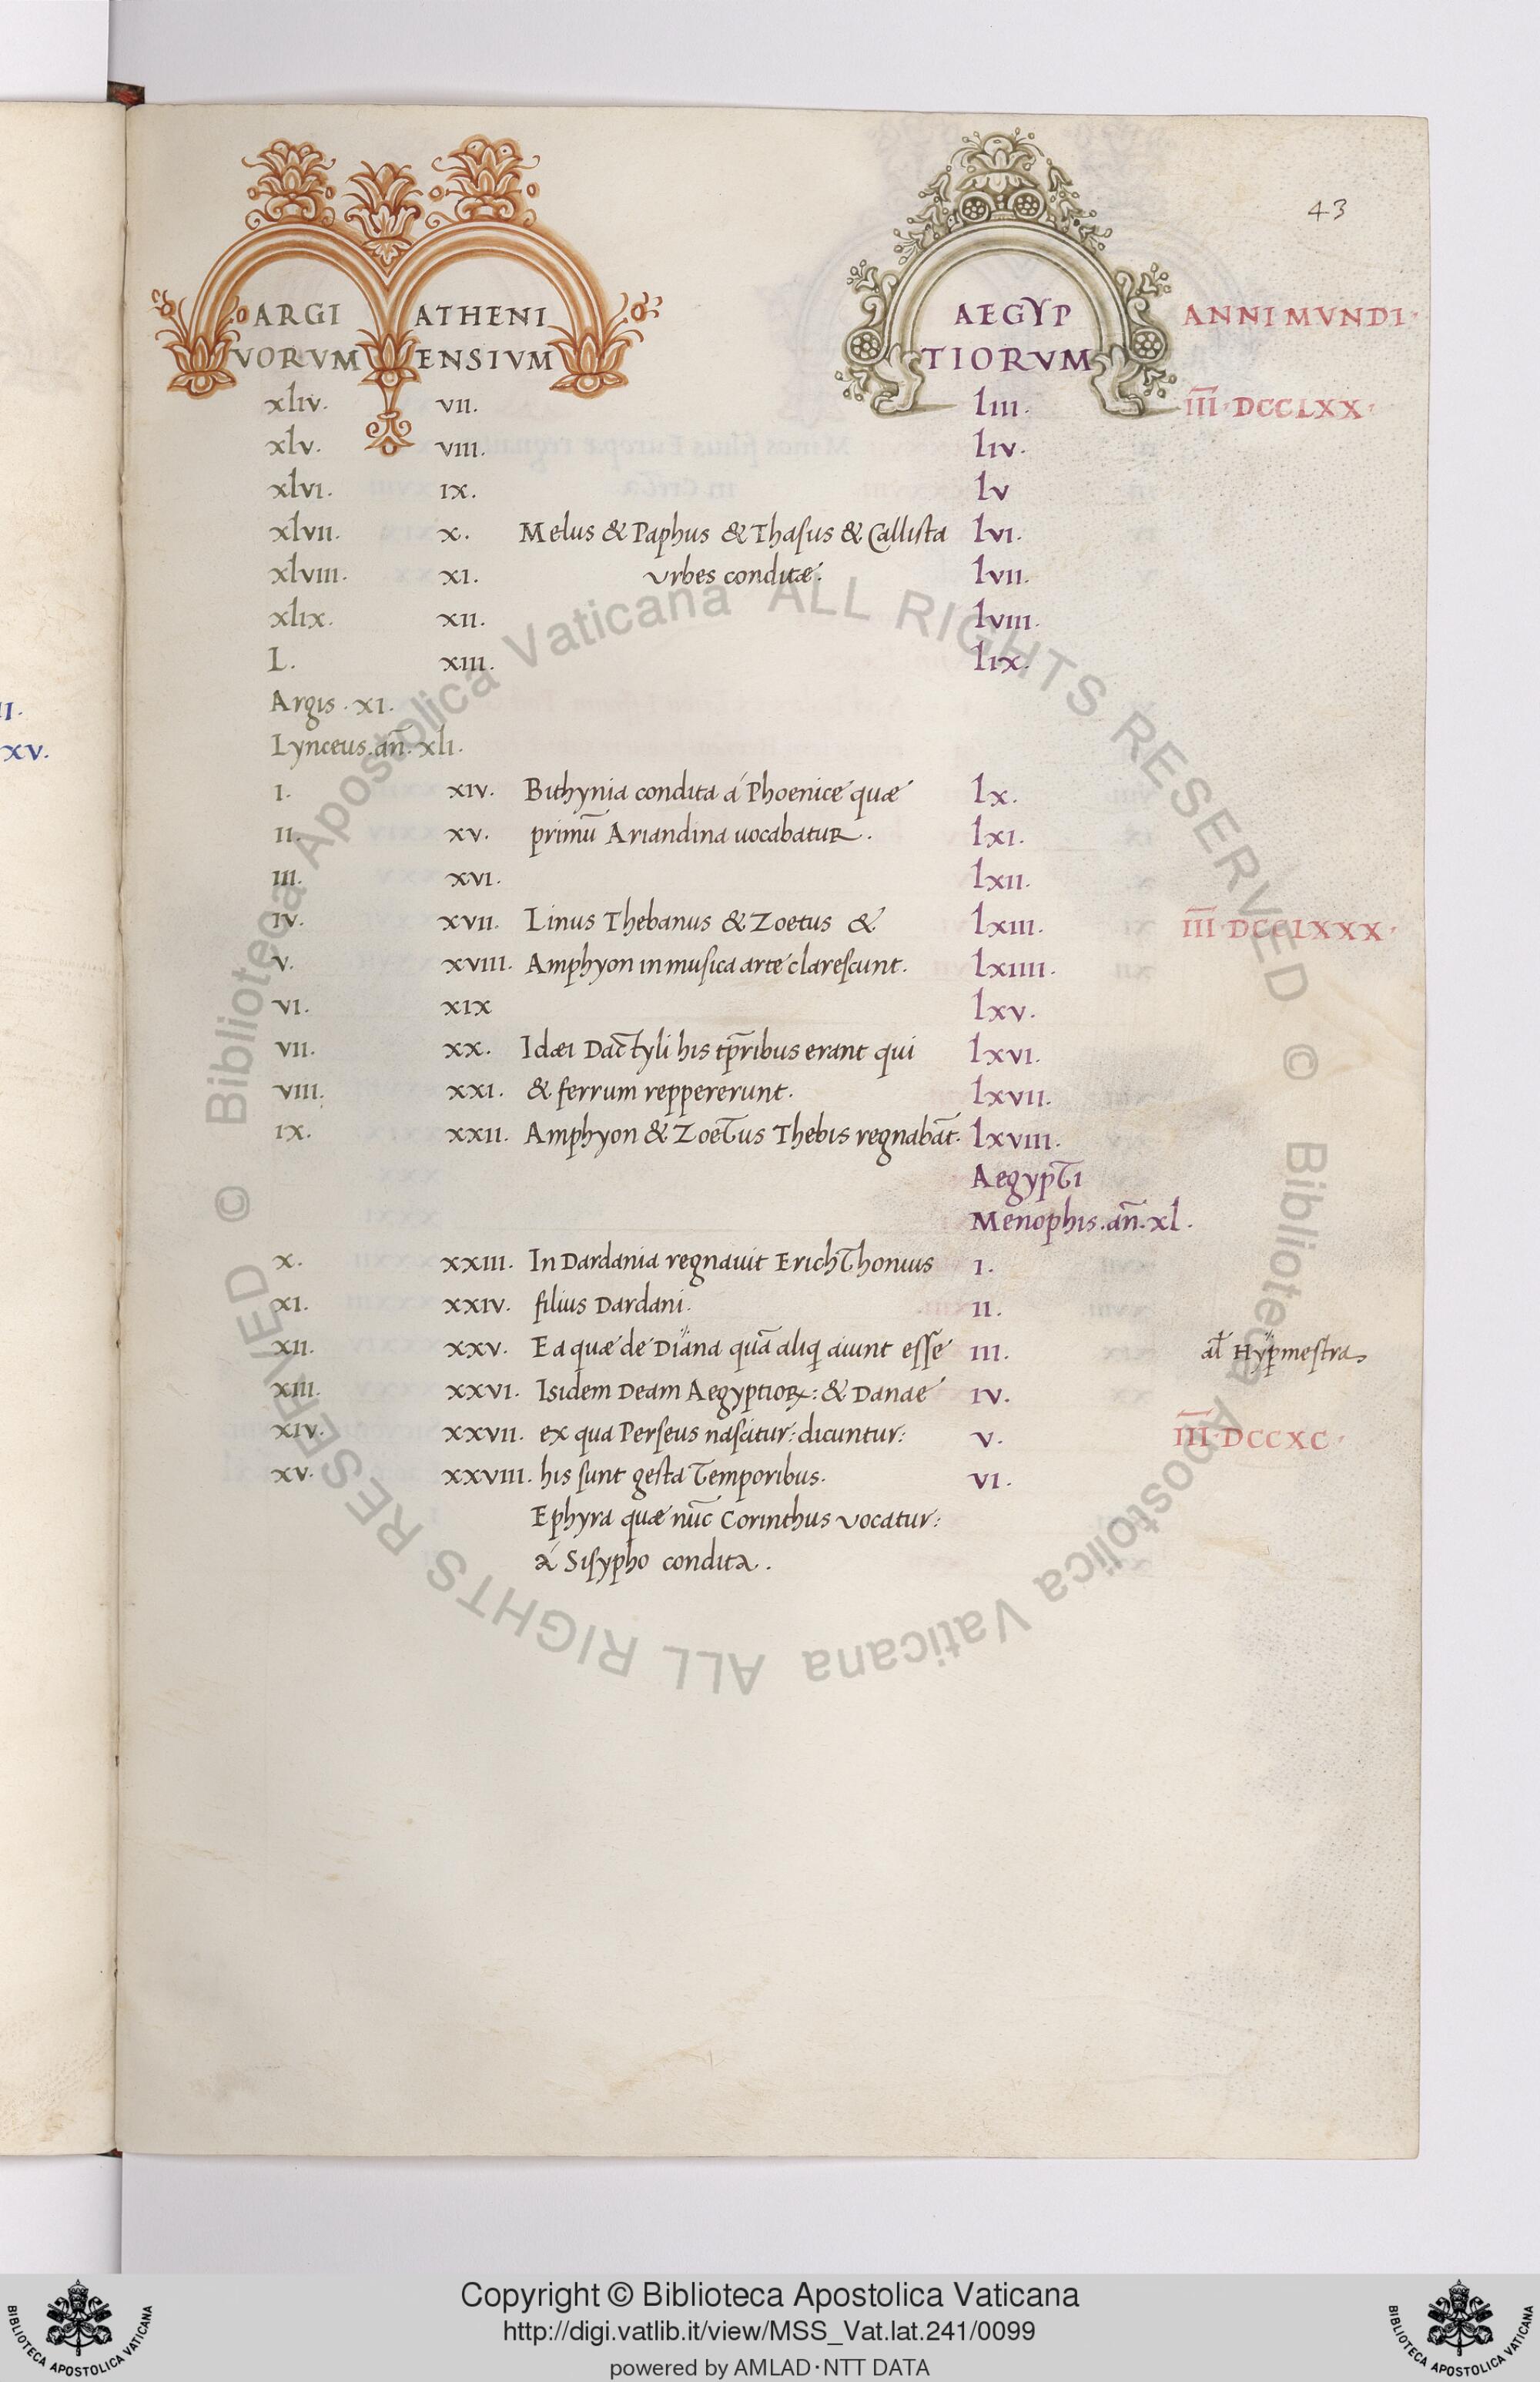 43
ARGI ATHENI AEGYP ANNI MVNDI·
VORVM ENSIVM TIORVM
xliv. VII. lIII. III·DCCLXX·
xlv. VIII. lIV.
xlvi. IX. lV
xlvii. X. Melus & Paphus & Thasus & Callista lVI.
xlviii. XI. Vrbes conditæ. lVII.
xlix. XII. lVIII.
L. XIII. lIX.
Argis. XI.
Lynceus. añ. xli.
I. XIV. Bithynia condita á Phoenice quæ lX.
II. XV. primū Ariandina uocabatur. lXI.
III. XVI. lXII.
IV. XVII. Linus Thebanus & Zoetus & lXIII. III·DCCLXXX·
V. XVIII. Amphyon in musica arte clarescunt. lXIIII.
VI. XIX lXV.
VII. XX. Idæi Dactyli his tp̄ribus erant qui lXVI.
VIII. XXI. & ferrum reppererunt. lXVII.
IX. XXII. Amphyon & Zoetus Thebis regnabāt. lXVIII.
Aegypti
Menophis. añ. xl.
X. XXIII. In Dardania regnauit Erichthonius I.
XI. XXIV. filius Dardani. II.
XII. XXV. Ea quæ de Diana quā aliq aiunt esse III. al Hypmestra
XIII. XXVI. Isidem Deam Aegyptioꝝ: & Danae IV.
XIV. XXVII. ex qua Perseus nascitur: dicuntur: V. III·DCCXC·
XV. XXVIII. his sunt gesta temporibus. VI.
Ephyra quæ nūc Corinthus vocatur:
á Sisypho condita.
II.
XV.
© Biblioteca Apostolica Vaticana ALL RIGHTS RESERVED © Biblioteca Apostolica Vaticana ALL RIGHTS RESERVED
Copyright © Biblioteca Apostolica Vaticana
http://digi.vatlib.it/view/MSS_Vat.lat.241/0099
powered by AMLAD·NTT DATA
BIBLIOTECA APOSTOLICA VATICANA
BIBLIOTECA APOSTOLICA VATICANA